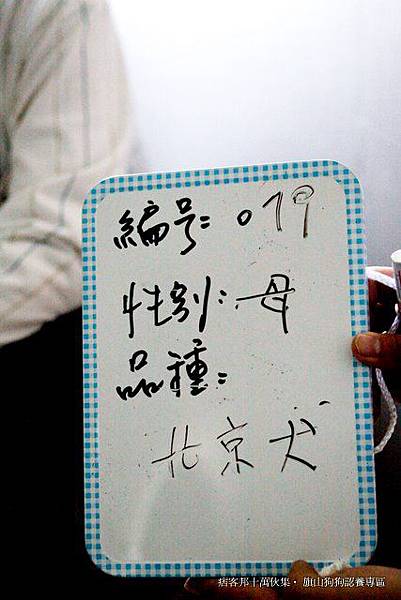 编号: 019
性别: 母
品種:
北京犬
痞客邦十萬伙集‧旗山狗狗認養專區